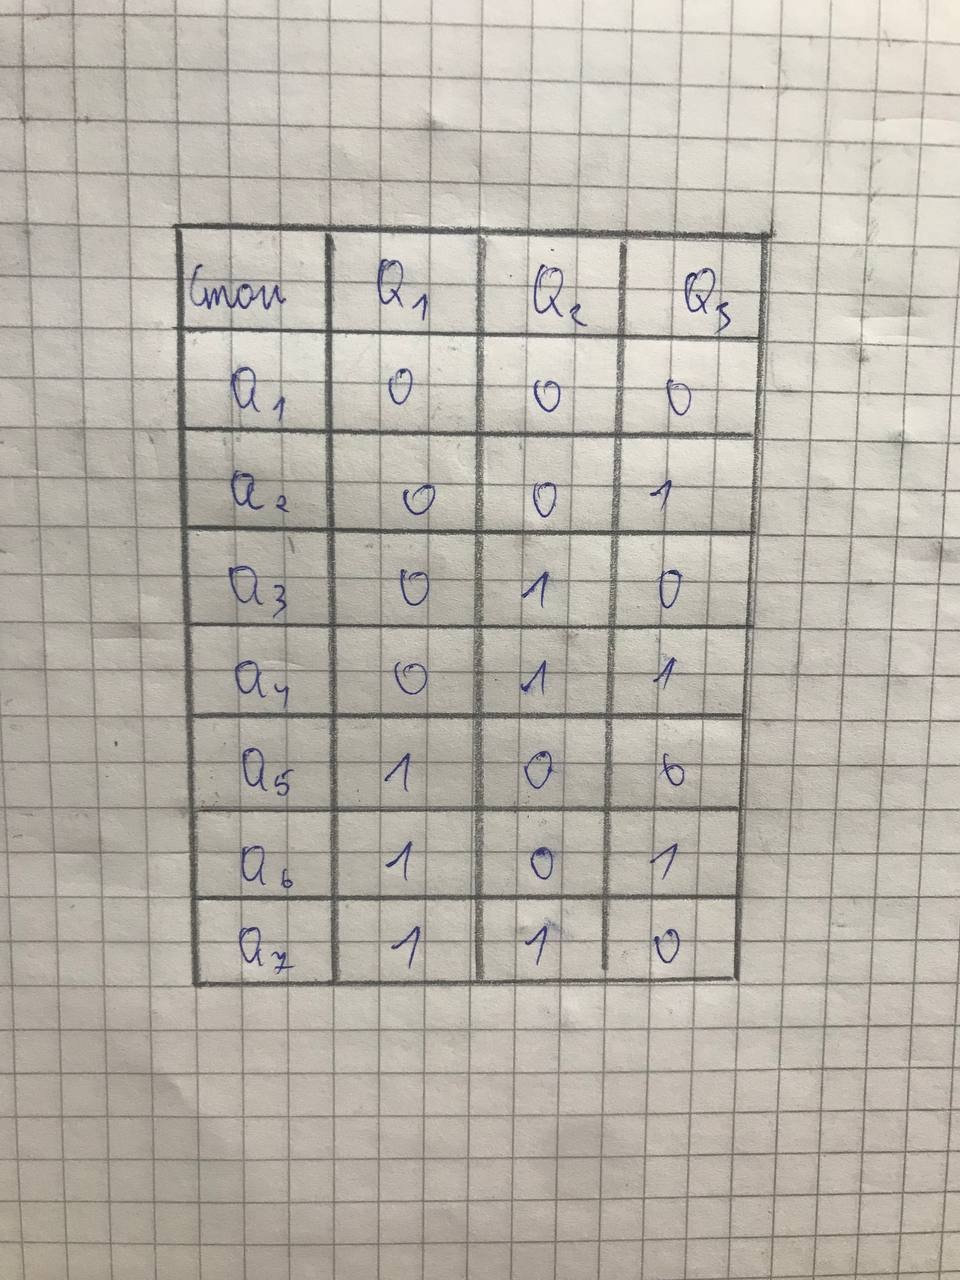 Стан Q₁ Q₂ Q₃
a₁ 0 0 0
a₂ 0 0 1
a₃ 0 1 0
a₄ 0 1 1
a₅ 1 0 0
a₆ 1 0 1
a₇ 1 1 0